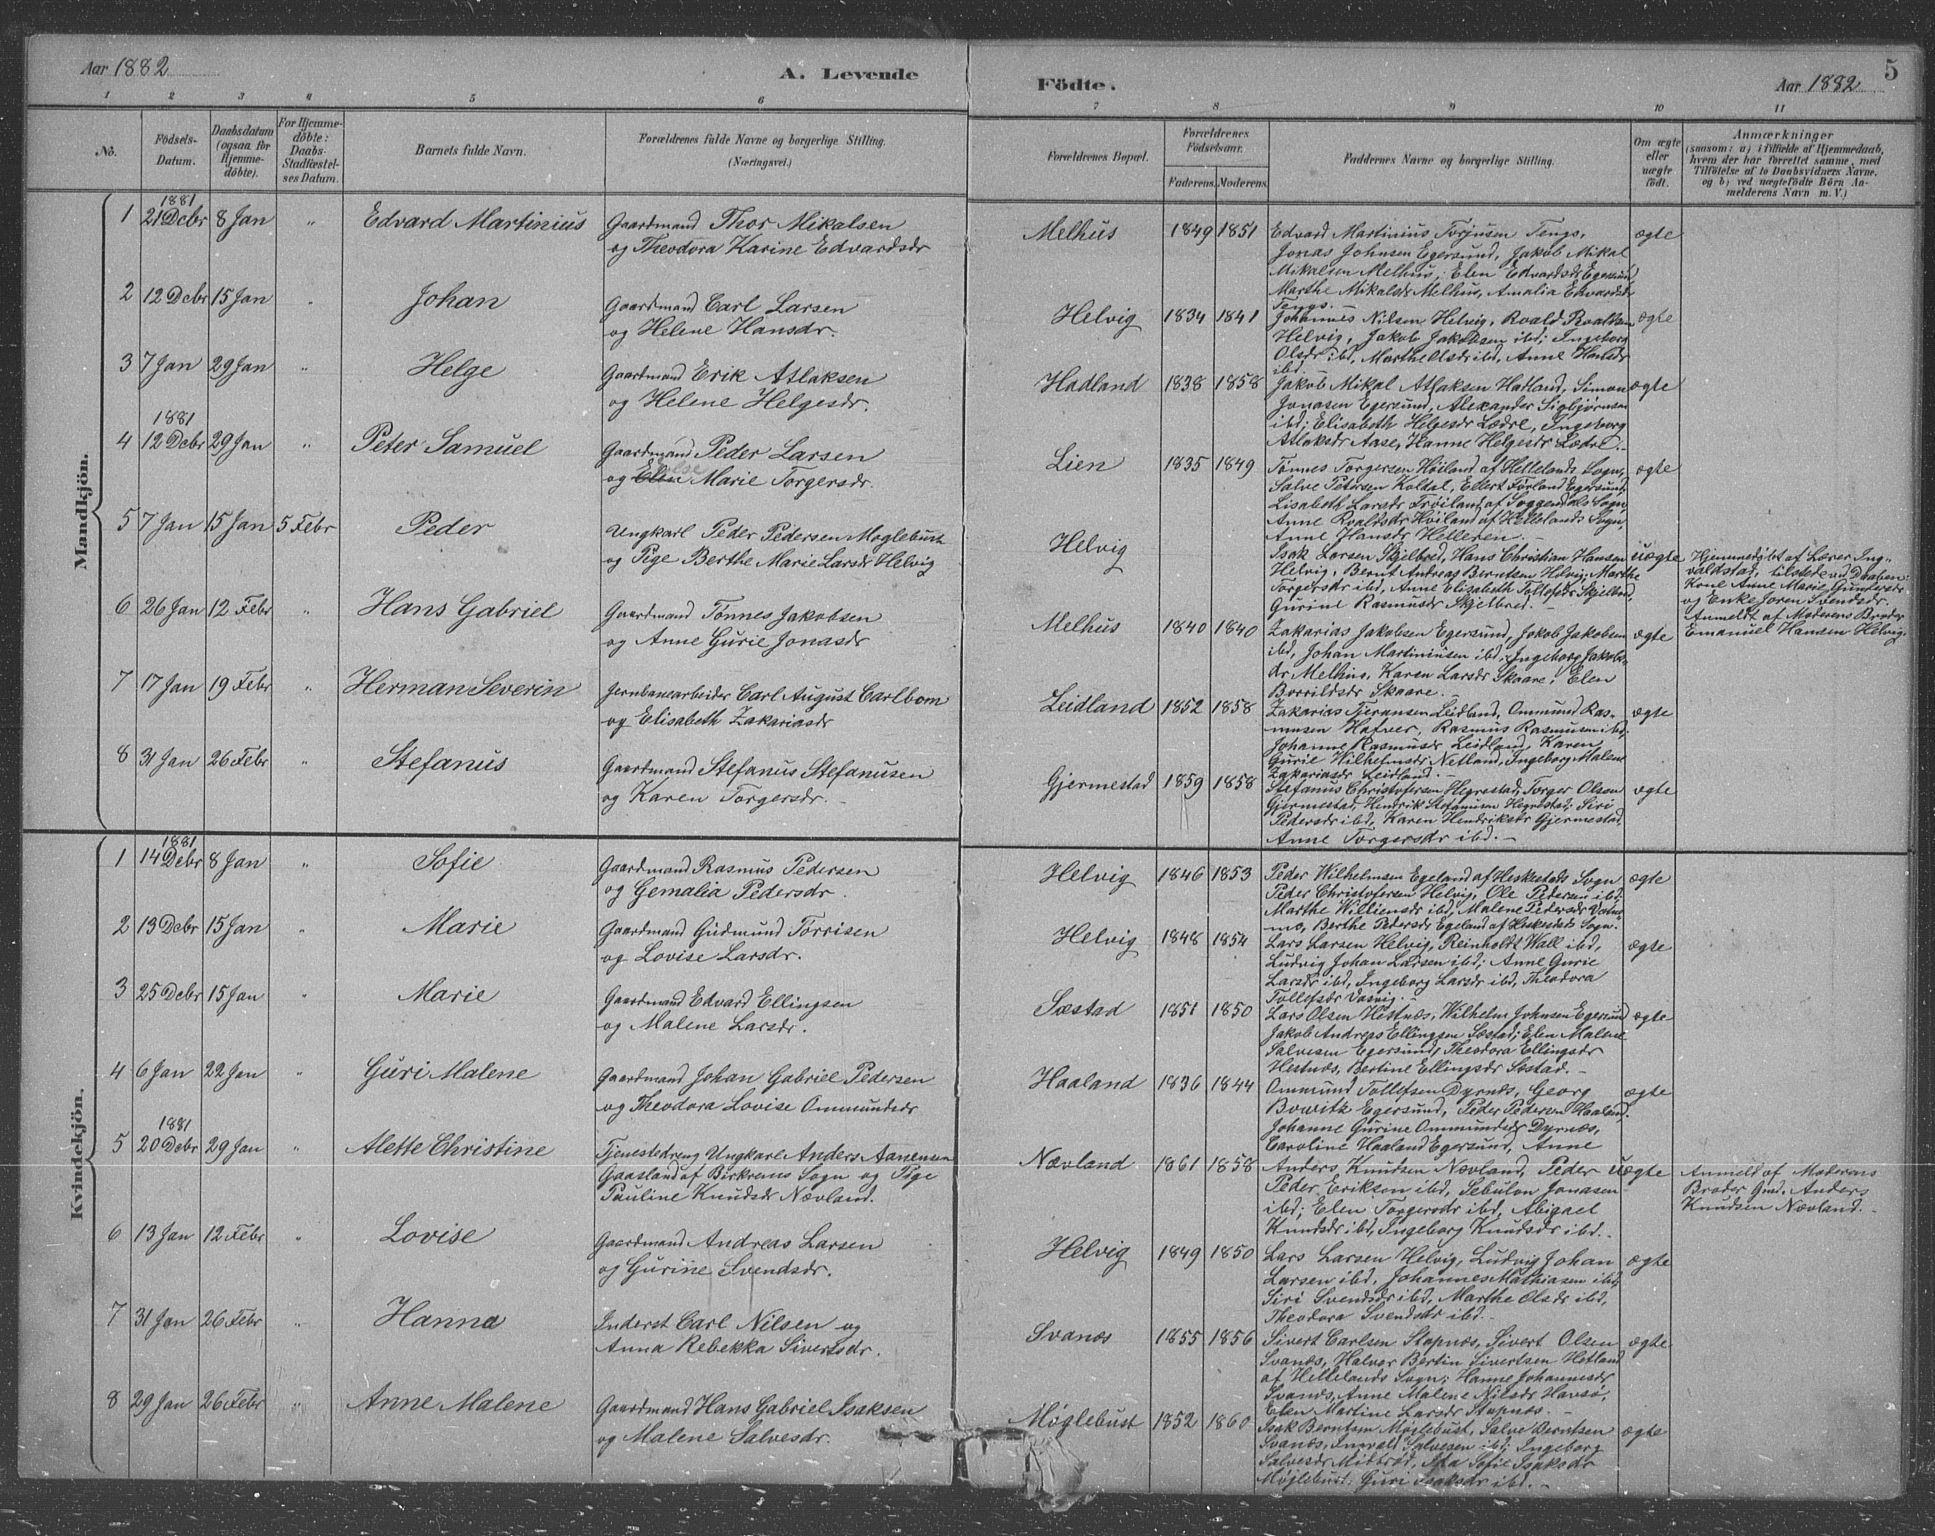 Aar 1882
A. Levende
1 2 3 4 5 6
No.
Födsels-
Datum.
Daabsdatum
(ogsaa for
Hjemme-
döbte).
For Hjemme-
döbte:
Daabs-
Stadfæstel-
ses Datum.
Barnets fulde Navn.
Forældrenes fulde Navne og borgerlige Stilling.
(Næringsvei.)
Mandkjön.
1881
1 21 Debr 8 Jan " Edvard Martinius Gaardmand Thor Mikalsen
og Theodora Karine Edvardsdr
2 12 Debr 15 Jan " Johan Gaardmand Carl Larsen
og Helene Hansdr.
3 7 Jan 29 Jan " Helge Gaardmand Erik Atlaksen
og Helene Helgesdr.
1881
4 12 Debr 29 Jan " Peter Samuel Gaardmand Peder Larsen
og Marie Torgersdr.
5 7 Jan 15 Jan 5 Febr Peder Ungkarl Peder Pedersen Møglebust
og Pige Berthe Marie Larsdr Helvig
6 26 Jan 12 Febr " Hans Gabriel Gaardmand Tønnes Jakobsen
og Anne Gurie Jonasdr
7 17 Jan 19 Febr " Herman Severin Jernbanearbeider Carl August Carlbom
og Elisabeth Zakariasdr
8 31 Jan 26 Febr " Stefanus Gaardmand Stefanus Stefanusen
og Karen Torgersdr. -
Kvindekjön.
1881
1 14 Debr 8 Jan " Sofie Gaardmand Rasmus Pedersen
og Gemalia Pedersdr.
2 13 Debr 15 Jan " Marie Gaardmand Gudmund Torrisen
og Lovise Larsdr.
3 25 Debr 15 Jan " Marie Gaardmand Edvard Ellingsen
og Malene Larsdr.
4 6 Jan 22 Jan " Guri Malene Gaardmand Johan Gabriel Pedersen
og Theodora Lovise Ommundsdr
1881
5 20 Debr 29 Jan " Alette Christine Tjenestedreng Ungkarl Anders Aanensen
Gaasland af Birkrems Sogn og Pige
Pauline Knudsdr Nævland.
6 13 Jan 12 Febr " Lovise Gaardmand Andreas Larsen
og Gurine Svendsdr.
7 31 Jan 26 Febr " Hanna Inderst Carl Nilsen og
Anna Rebekka Sivertsdr.
8 29 Jan 26 Febr " Anne Malene Gaardmand Hans Gabriel Isaksen
og Malene Salvesdr.
Födte.
Aar 1882
5
7 8 9 10 11
Forældrenes Bopæl.
Forældrenes
Födselsaar.
Faderens. Moderens.
Faddernes Navne og borgerlige Stilling.
Om ægte
eller
uægte
födt.
Anmærkninger
(saasom: a) i tilfælde af Hjemmedaab,
hvem der har forrettet samme, med
Tilföielse af to Daabsvidners Navne,
og b) ved uægtefödte Börn An-
melderens Navn m. V.)
Melhus 1849 1851 Edvard Martinius Torjusen Tengs, ægte
Jonas Johnsen Egersund, Jakob Mikal
Mikalsen Melhus; Elen Edvardsdr Egersund
Marthe Mikalsdr Melhus, Amalia Edvardsdr
Tengs.
Helvig 1834 1841 Johannes Nilsen Helvig, Roald Roaldsen ægte
Helvig, Jakob Jakobsen ibd; Ingeborg
Olsdr ibd, Marthe Olsdr ibd, Anne Hansdr
ibd.
Hadland 1838 1858 Jakob Mikal Atlaksen Hadland, Simon ægte
Jonasen Egersund, Alexander Sigbjørnsen
ibd; Elisabeth Helgesdr Lædre, Ingeborg
Atlaksdr Aase, Hanne Helgesdr Lædre.
Lien 1835 1849 Tønnes Torgersen Høiland af Hellelands Sogn, ægte
Salve Petersen Koldal, Edert Førland Egersund,
Lisabeth Larsdr Frøiland af Soggendals Sogn,
Anne Roaldsdr Høiland af Hellelands Sogn,
Anne Hansdr Helleren. -
Helvig Isak Larsen Skjelbred, Hans Christian Hansen uægte Hjemmedøbt af Lærer Ing-
Helvig, Bernt Andreas Berntsen Helvig; Marthe valdstad, tilstede ved Daaben:
Torgersdr ibd, Anne Elizabeth Tollefsdr Skjelbred, Kone Anne Marie Gundersdr
Gurine Rasmusdr Skjelbred. - og Enke Joren Svendsdr.
Anmeldt af Moderens Broder
Emanuel Hansen Helvig.
Melhus 1840 1840 Zakarias Jakobsen Egersund, Jakob Jakobsen ægte
ibd, Johan Martiniusen ibd; Ingeborg Jakobs-
dr Melhus, Karen Larsdr Skaare, Elen
Borrildsdr Skaare.
Leidland 1852 1858 Zakarias Tjeransen Leidland, Ommund Ras- ægte
mussen Hafver, Rasmus Rasmusen ibd;
Johanne Rasmusdr Leidland, Karen
Gurie Wilhelmsdr Netland, Ingeborg Malene
Zakariasdr Leidland. -
Gjermestad 1859 1858 Stefanus Christofersen Hegrestad, Torger Olsen ægte
Gjermestad, Hendrik Stefanusen Hegrestad; Siri
Pedersdr ibd, Karen Hendriksdr Gjermestad,
Anne Torgersdr ibd. -
Helvig 1846 1853 Peder Wilhelmsen Egeland af Heskestads Sogn ægte
Peder Christofersen Helvig, Ole Pedersen ibd;
Marthe Williensdr ibd, Malene Pedersdr Vatne-
mo, Berthe Pedersdr Egeland af Heskestads Sogn.
Helvig 1848 1854 Lars Larsen Helvig, Reinholdt Wall ibd, ægte
Ludvig Johan Larsen ibd; Anne Gurie
Larsdr ibd, Ingeborg Larsdr ibd, Theodora
Tollefsdr Vasvig. -
Sæstad 1851 1850 Lars Olsen Hestnæs, Wilhelm Johnsen Egersund ægte
Jakob Andreas Ellingsen Sæstad; Elen Malene
Salvesen Egersund, Theodora Ellingsdr
Hestnæs, Bertine Ellingsdr Sæstad. -
Haaland 1836 1844 Ommund Tollefsen Dyrnæs, Georg ægte
Bowitz Egersund, Peder Pedersen Haaland;
Johanne Gurine Ommundsdr Dyrnæs,
Caroline Haaland Egersund, Anne
Nævland 1861 1858 Anders Knudsen Nævland, Peder uægte Anmeldt af Moderens
Peder Eriksen ibd, Sebulon Jonasen Broder Gmd. Anders
ibd; Elen Torgersdr ibd, Abigael Knudsen Nævland. -
Knudsdr ibd, Ingeborg Knudsdr ibd. -
Helvig 1849 1850 Lars Larsen Helvig, Ludvig Johan ægte
Larsen ibd, Johannes Mathiasen ibd;
Siri Svendsdr ibd, Marthe Olsdr ibd,
Theodora Svendsdr ibd. -
Svanæs 1855 1856 Sivert Carlsen Stapnæs, Sivert Olsen ægte
Svanæs, Halvor Bertin Sivertsen Hetland
af Hellelands Sogn; Hanne Johannesdr
Svanæs, Anne Malene Nilsdr Havsø,
Elen Martine Larsdr Stapnæs. -
Møglebust 1852 1860 Isak Berntsen Møglebust, Salve Berntsen ægte
Svanæs, Ingvald Salvesen ibd; Ingeborg
Salvesdr Midbrød, Ida Sofie Isaksdr
Møglebust, Guri Isaksdr ibd. -